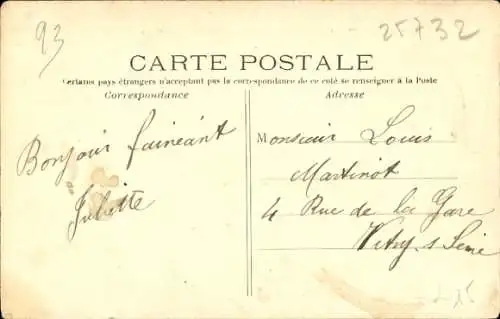 93
25732
CARTE POSTALE
Certains pays étrangers n'acceptant pas la correspondance de ce coté se renseigner à la Poste
Correspondance
Adresse
Bonjour fainéant
Juliette
Monsieur Louis
Martinot
4 Rue de la Gare
Vitry s Seine